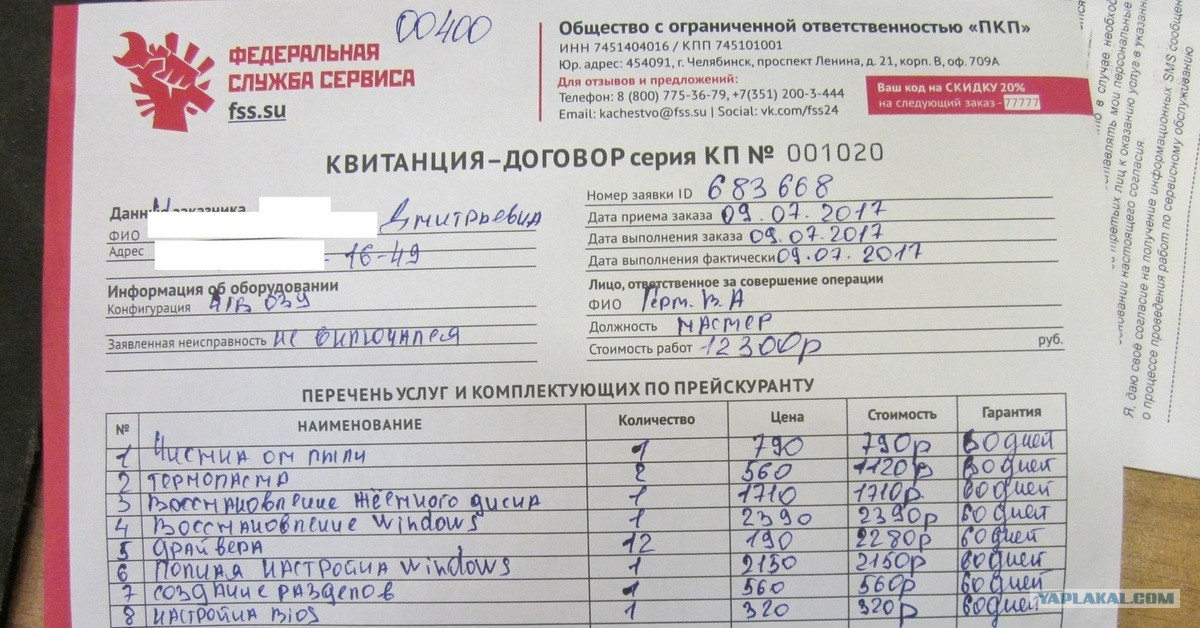 00400
ФЕДЕРАЛЬНАЯ
СЛУЖБА СЕРВИСА
fss.su
Общество с ограниченной ответственностью «ПКП»
ИНН 7451404016 / КПП 745101001
Юр. адрес: 454091, г. Челябинск, проспект Ленина, д. 21, корп. В, оф. 709А
Для отзывов и предложений:
Телефон: 8 (800) 775-36-79, +7(351) 200-3-444
Email: kachestvo@fss.su | Social: vk.com/fss24
Ваш код на СКИДКУ 20%
на следующий заказ - 77777
КВИТАНЦИЯ–ДОГОВОР серия КП № 001020
Данные заказчика
ФИО Дмитриевич
Адрес - 16-49
Информация об оборудовании
Конфигурация
Заявленная неисправность не включался
Номер заявки ID 683668
Дата приема заказа 09.07.2017
Дата выполнения заказа 09.07.2017
Дата выполнения фактически 09.07.2017
Лицо, ответственное за совершение операции
ФИО Герт. В. А
Должность мастер
Стоимость работ 12300р руб.
ПЕРЕЧЕНЬ УСЛУГ И КОМПЛЕКТУЮЩИХ ПО ПРЕЙСКУРАНТУ
№ НАИМЕНОВАНИЕ Количество Цена Стоимость Гарантия
1 Чистка от пыли 1 790 790р 60 дней
2 термопаста 2 560 1120р 60 дней
3 Восстановление жёсткого диска 1 1710 1710р 60 дней
4 Восстановление Windows 1 2390 2390р 60 дней
5 драйвера 12 190 2280р 60 дней
6 Полная настройка windows 1 2150 2150р 60 дней
7 создание разделов 1 560 560р 60 дней
8 настройка Bios 1 320 320р 60 дней
Я, даю свое согласие на получение информационных SMS сообщен
о процессе проведения работ по сервисному обслуживанию
YAPLAKAL.COM